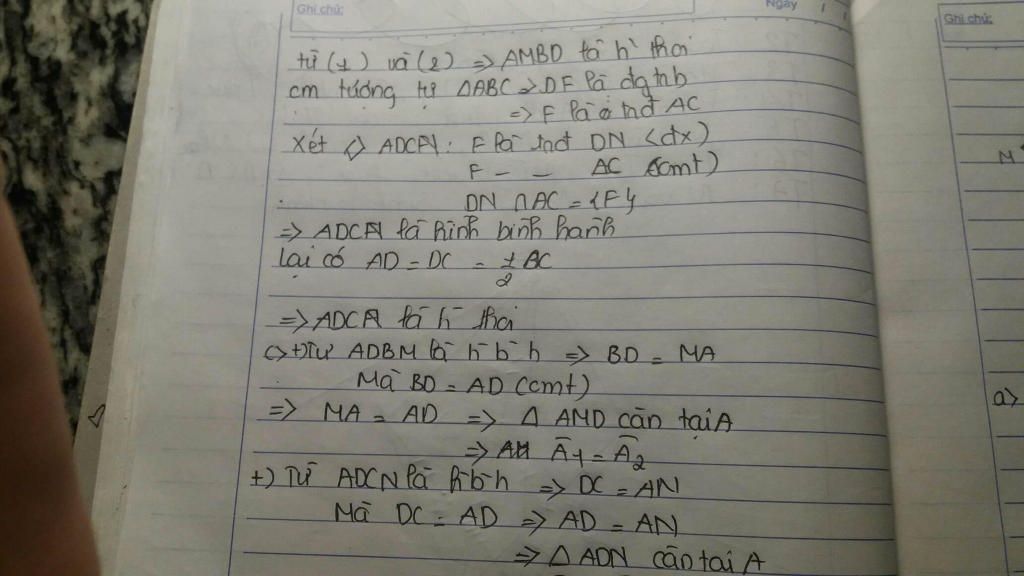 Ghi chú:
Ngày
từ (1) và (2) => AMBD là h` thoi
cm tương tự ΔABC => DF là đg tnb
=> F là tnđ AC
Xét ◊ ADCN: F là tnđ DN (đx)
F - - AC (cmt)
DN ∩ AC = {F}
=> ADCN là hình bình hành
lại có AD = DC = 1/2 BC
=> ADCN là h` thoi
c> +) Từ ADBM là h-b-h => BD = MA
Mà BD = AD (cmt)
=> MA = AD => Δ AMD cân tại A
=> Â1 = Â2
+) Từ ADCN là h-b-h => DC = AN
Mà DC = AD => AD = AN
=> Δ ADN cân tại A
Ghi chú:
M
a>